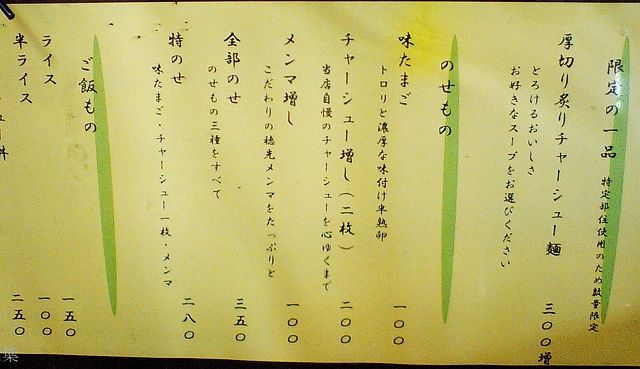 限定の一品
特定部位使用のため数量限定
厚切り炙りチャーシュー麺 三〇〇増
とろけるおいしさ
お好きなスープをお選びください
のせもの
味たまご 一〇〇
トロリと濃厚な味付け半熟卵
チャーシュー増し(二枚) 二〇〇
当店自慢のチャーシューを心ゆくまで
メンマ増し 一〇〇
こだわりの穂先メンマをたっぷりと
全部のせ 三五〇
のせもの三種をすべて
特のせ 二八〇
味たまご・チャーシュー一枚・メンマ
ご飯もの
ライス 一五〇
半ライス 一〇〇
二五〇